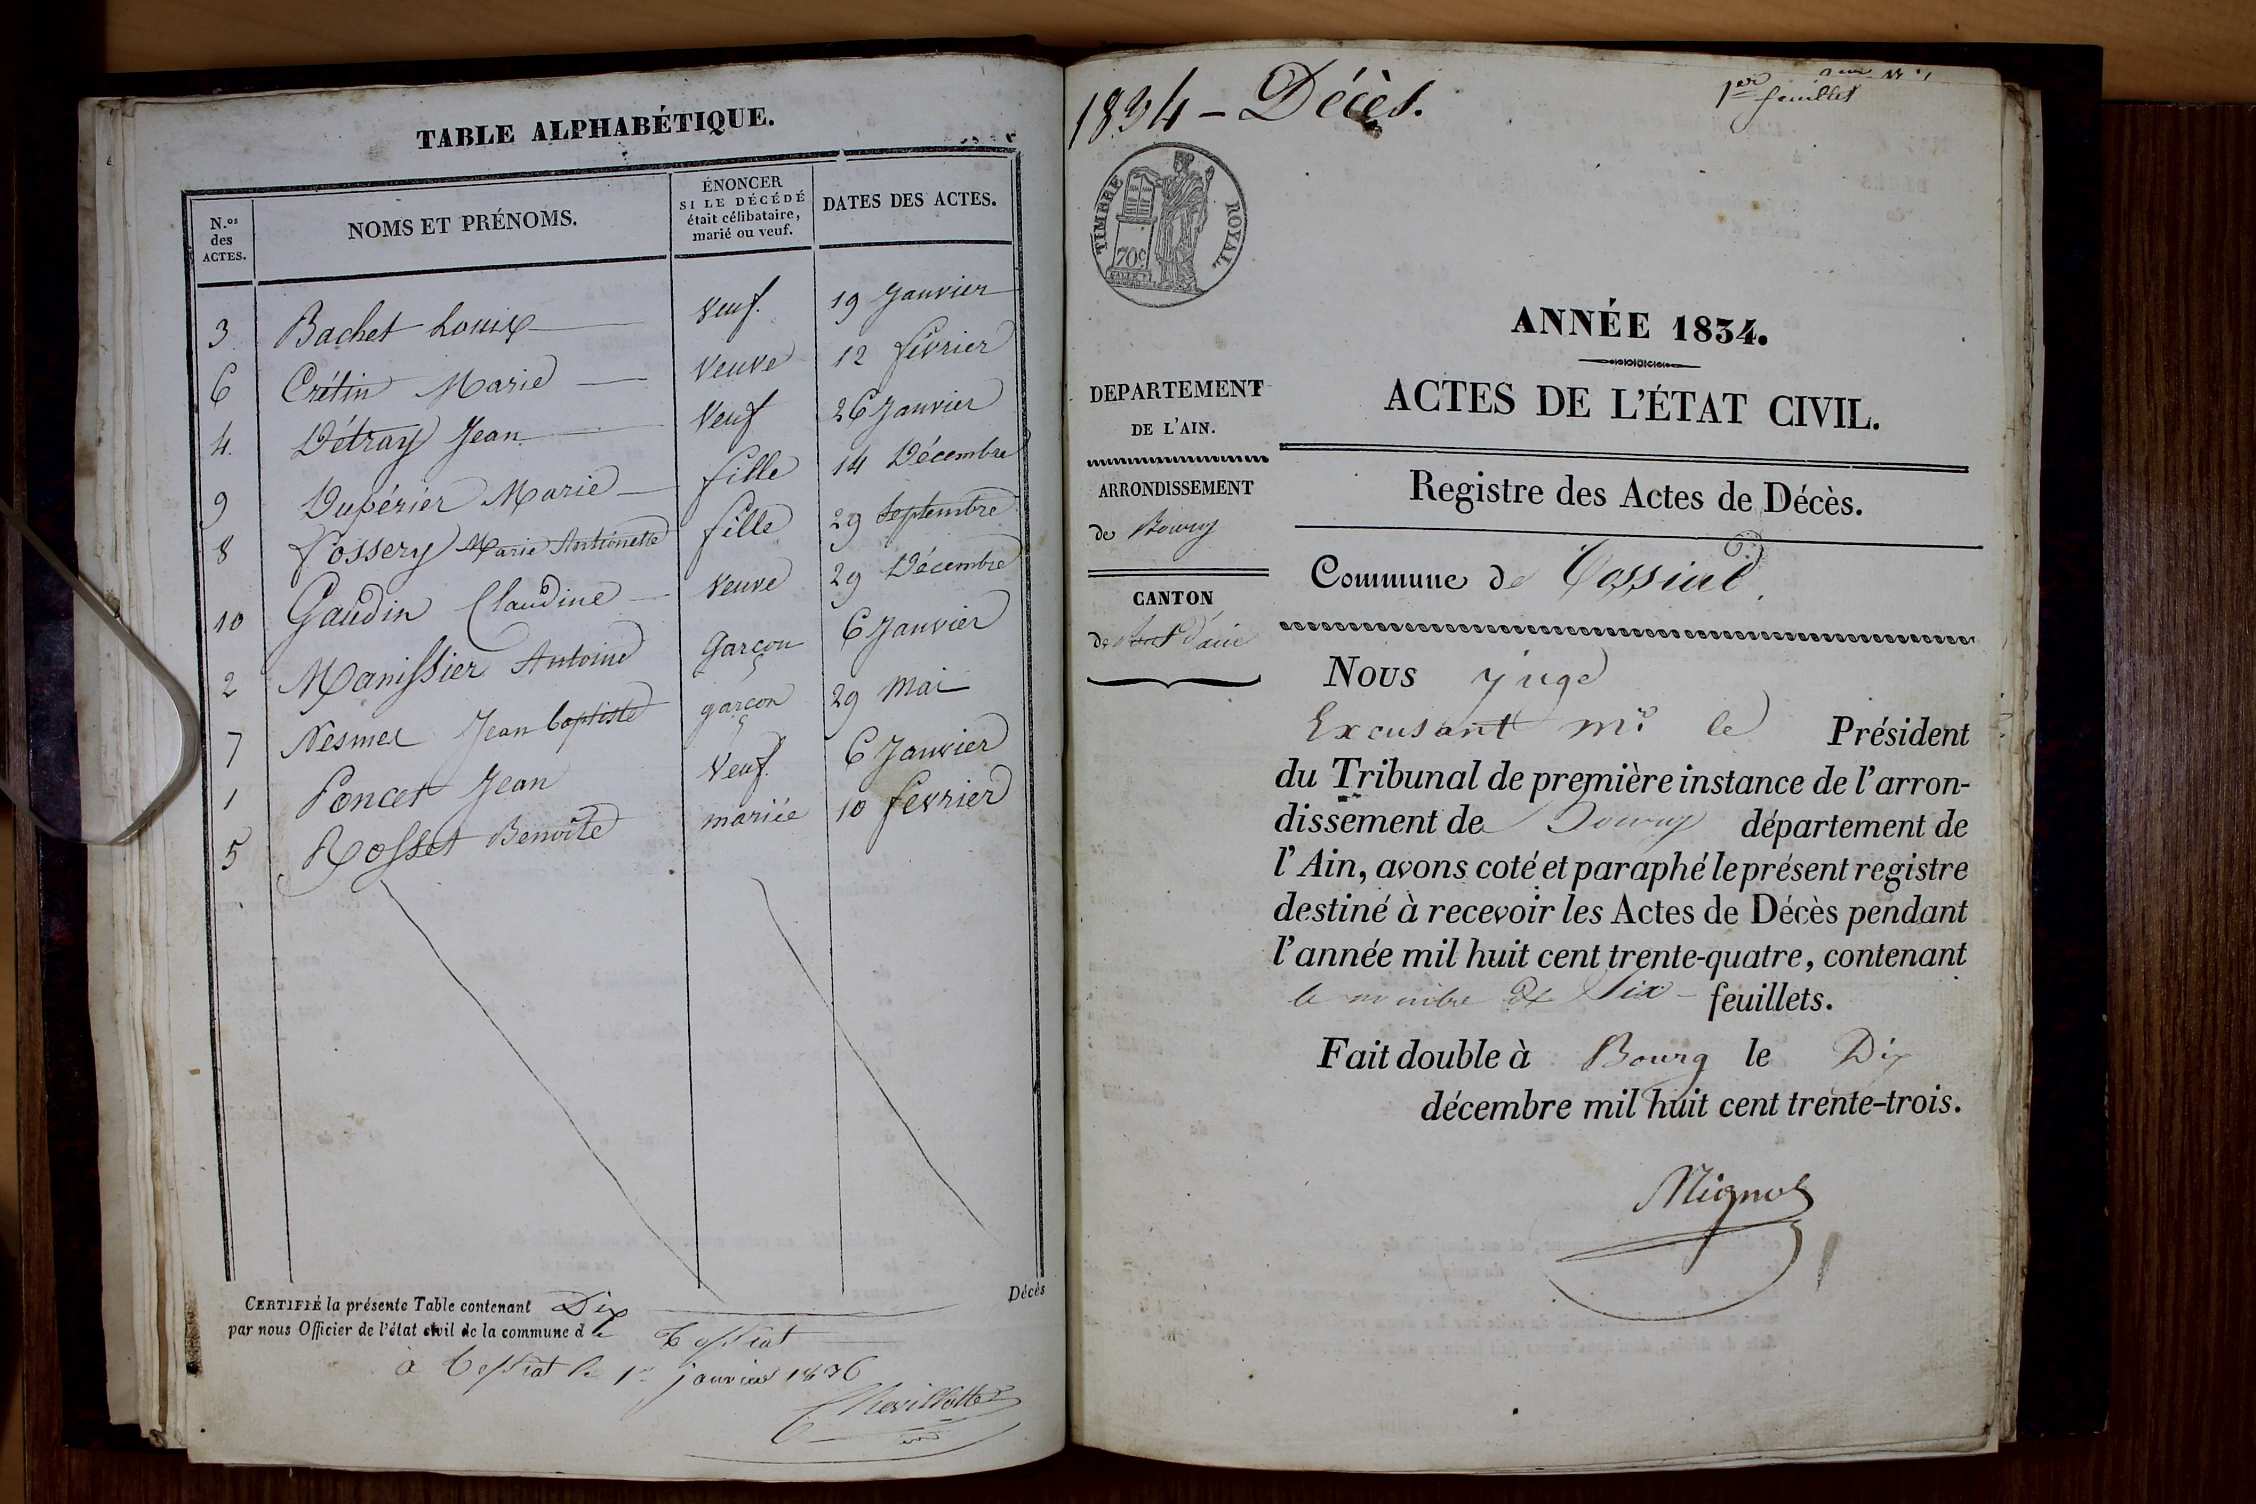 TABLE ALPHABÉTIQUE.
N.os des ACTES.
NOMS ET PRÉNOMS.
ÉNONCER SI LE DÉCÉDÉ était célibataire, marié ou veuf.
DATES DES ACTES.
3 Bachet Louis veuf. 19 Janvier
6 Crétin Marie veuve 12 février
4. Détray Jean veuf 26 Janvier
9 Dupérier Marie fille 14 Décembre
8 Fossery Marie Antoinette fille 29 Septembre
10 Gaudin Claudine veuve 29 Décembre
2 Manissier Antoine garçon 6 Janvier
7 Nesmes Jean baptiste garçon 29 Mai
1 Poncet Jean veuf. 6 Janvier
5 Rosset Benoîte mariée 10 février
Décès
CERTIFIÉ la présente Table contenant Dix
par nous Officier de l'état civil de la commune de
à le 1er janvier 1836
Chevillotte
1834 - Décès.
1er feuillet
TIMBRE ROYAL
70c
ANNÉE 1834.
ACTES DE L'ÉTAT CIVIL.
DEPARTEMENT
DE L'AIN.
ARRONDISSEMENT
de Bourg
CANTON
de Pont d'ain
Registre des Actes de Décès.
Commune de Tossiat
Nous juge
Excusant Mr le Président
du Tribunal de première instance de l'arron-
dissement de Bourg département de
l'Ain, avons coté et paraphé le présent registre
destiné à recevoir les Actes de Décès pendant
l'année mil huit cent trente-quatre, contenant
le nombre de Six feuillets.
Fait double à Bourg le Dix
décembre mil huit cent trente-trois.
Mignot